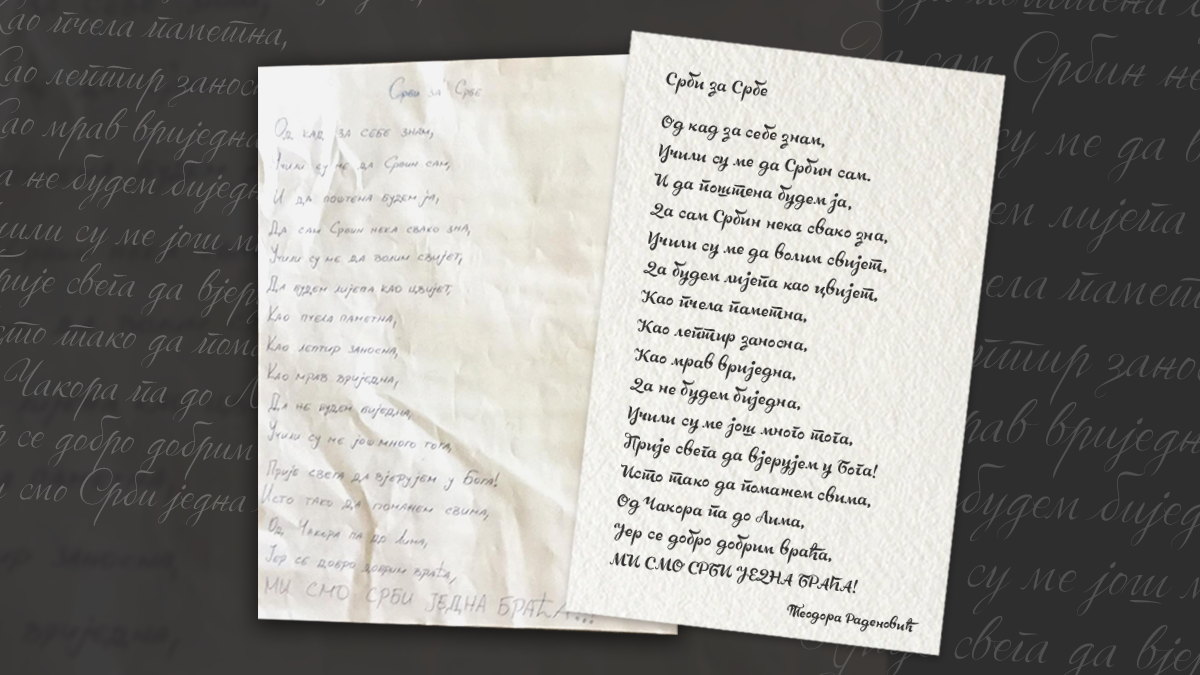 Срби за Србе
Од кад за себе знам,
Учили су ме да Србин сам,
И да поштена будем ја,
Да сам Србин нека свако зна,
Учили су ме да волим свијет,
Да будем лијепа као цвијет,
Као пчела паметна,
Као лептир заносна,
Као мрав вриједна,
Да не будем биједна,
Учили су ме још много тога,
Прије свега да вјерујем у Бога!
Исто тако да поманем свима,
Од Чакора па до Лима,
Јер се добро добрим враћа,
МИ СМО СРБИ ЈЕДНА БРАЋА...!
Срби за Србе
Од кад за себе знам,
Учили су ме да Србин сам.
И да поштена будем ја,
Да сам Србин нека свако зна,
Учили су ме да волим свијет,
Да будем лијепа као цвијет,
Као пчела паметна,
Као лептир заносна,
Као мрав вриједна,
Да не будем биједна,
Учили су ме још много тога,
Прије свега да вјерујем у Бога!
Исто тако да поманем свима,
Од Чакора па до Лима,
Јер се добро добрим враћа,
МИ СМО СРБИ ЈЕДНА БРАЋА!
Теодора Раденовић